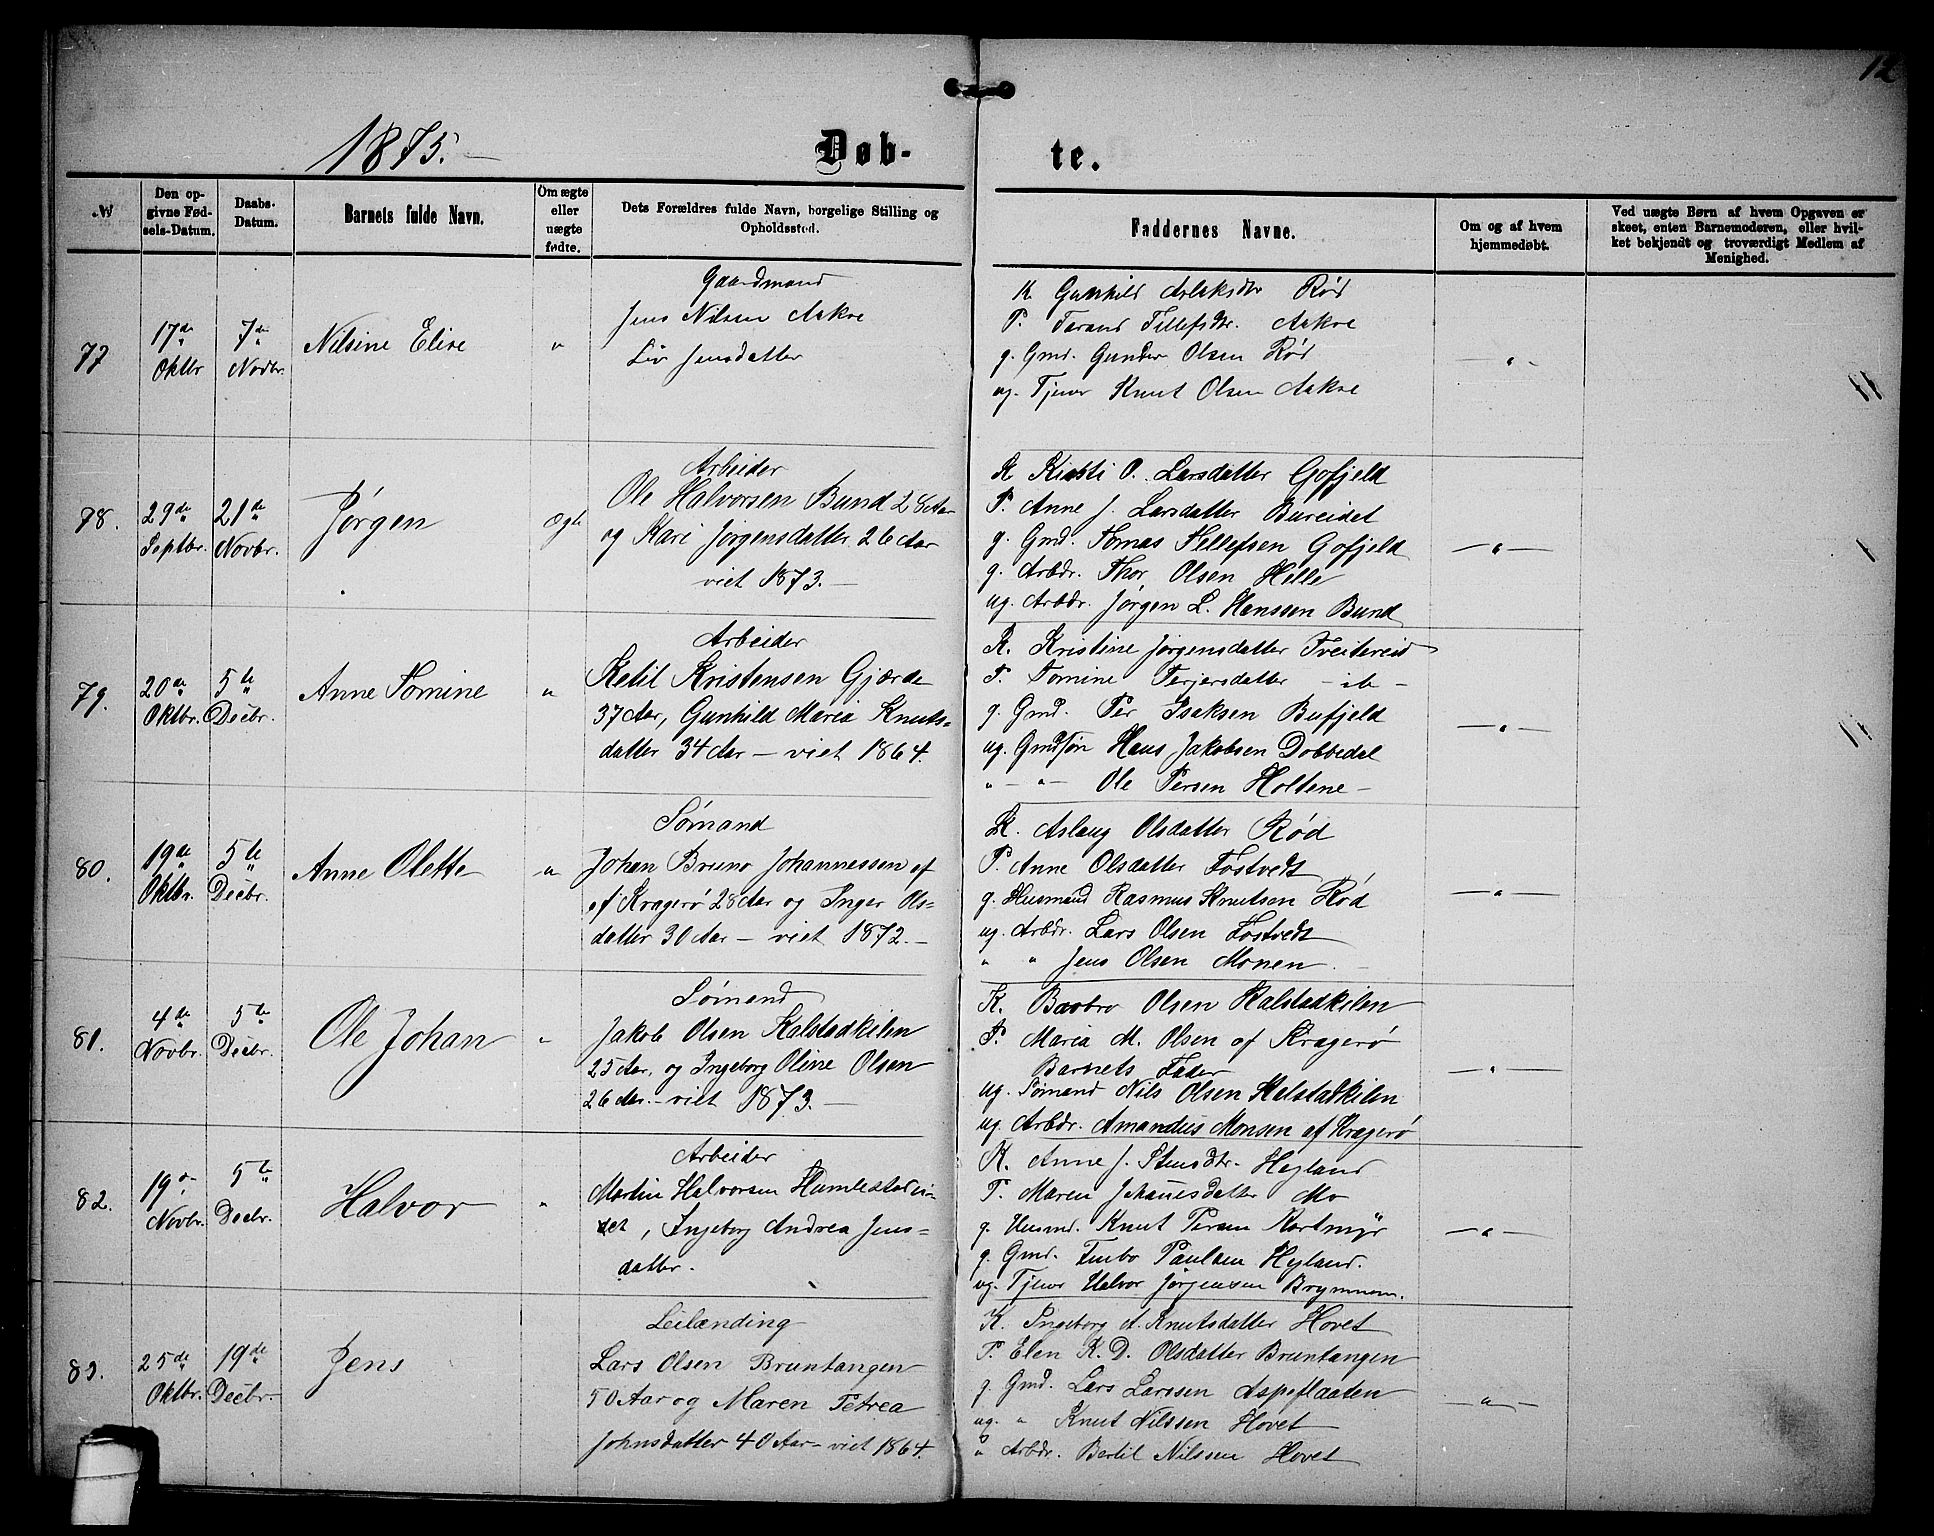 12
1875.
Døb-
te.
№
Den op-
givne Fød-
sels-Datum.
Daabs-
Datum.
Barnets fulde Navn.
Om ægte
eller
uægte
fødte.
Dets Forældres fulde Navn, borgelige Stilling og
Opholdssted.
Faddernes Navne.
Om og af hvem
hjemmedøbt.
Ved uægte Børn af hvem Opgaven er
skeet, enten Barnemoderen, eller hvil-
ket bekjendt og troværdigt Medlem af
Menighed.
77
17de
Oktbr
7de
Novbr.
Nilsine Elise
"
Gaardmand
Jens Nilsen Aakre
Liv Jensdatter
K. Gunhild Aslaksdtr Rød
P. Tarand Tellefsdtr. Aakre
g. Gmd. Gunder Olsen Rød
ug. Tjener Knut Olsen Aakre
— " —
78.
29de
Septbr.
21de
Novbr.
Jørgen
Ægte
Arbeider
Ole Halvorsen Bund 28 Aar
og Kari Jørgensdatter 26 Aar
viet 1873. —
K. Kirsti O. Larsdatter Gofjeld
P. Anne J. Larsdatter Bureidet
g. Gmd. Tomas Tellefsen Gofjeld
g. Arbdr. Thor Olsen Helle
ug. Arbdr. Jørgen L. Hanssen Bund
— " —
79.
20de
Oktbr.
5te
Decbr.
Anne Tomine
"
Arbeider
Ketil Kristensen Gjærde
37 Aar, Gunhild Maria Knuts-
datter 34 Aar — viet 1864.
K. Kristine Jørgensdatter Tveitereid
P. Tomine Terjersdatter — ib —
g. Gmd. Per Isaksen Bufjeld
ug. Gmdsøn Hans Jakobsen Dobbedal
" — " — Ole Persen Holtene —
— " —
80.
19de
Oktbr.
5te
Decbr.
Anne Olette
"
Sømand
Johan Bruno Johannessen af
af Kragerø 28 Aar og Inger Ols-
datter 30 Aar — viet 1872. —
K. Aslaug Olsdatter Rød
P. Anne Olsdatter Fostvedt
g. Husmand Rasmus Knutsen Rød
ug. Arbdr. Lars Olsen Fostvedt
" " Jens Olsen Monen. —
— " —
81.
4de
Novbr.
5te
Decbr.
Ole Johan
"
Sømand
Jakob Olsen Kalstadkilen
25 Aar, og Ingeborg Oline Olsen
26 Aar. — viet 1873. —
K. Barbro Olsen Kalstadkilen
P. Maria M. Olsen af Kragerø
Barnets Fader
ug. Sømand Nils Olsen Kalstadkilen
ug. Arbdr. Amandus Monsen af Kragerø
— " —
82.
19de
Novbr.
5te
Decbr.
Halvor
"
Arbeider
Martin Halvorsen
Ingeborg Andrea Jens-
datter.
K. Anne J. Stensdtr. Høgland
P. Maren Johanesdatter Mo
g. Husmd. Knut Persen
g. Gmd. Paulsen
ug. Tjener Halvor Jørgensen
— " —
83.
25de
Oktbr.
19de
Decbr.
Jens
Leilænding
Lars Olsen Bruntangen
50 Aar og Maren Petrea
Johnsdatter 40 Aar — viet 1864.
K. Ingeborg A. Knutsdatter Hovet
P. Elen K. D. Olsdatter Bruntangen
g. Gmd. Lars Larssen Aspeflaaten
ug. " Knut Nilssen Hovet
" Arbdr. Bertil Nilssen Hovet
— " —